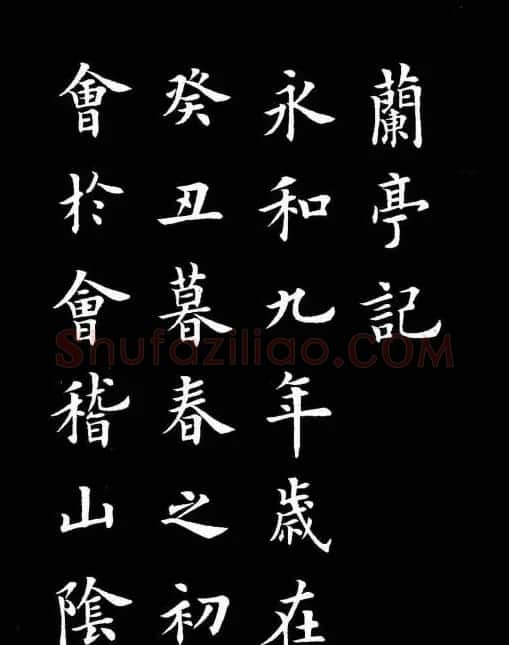 蘭亭記
永和九年歳在
癸丑暮春之初
會於會稽山陰
Shufaziliao.COM